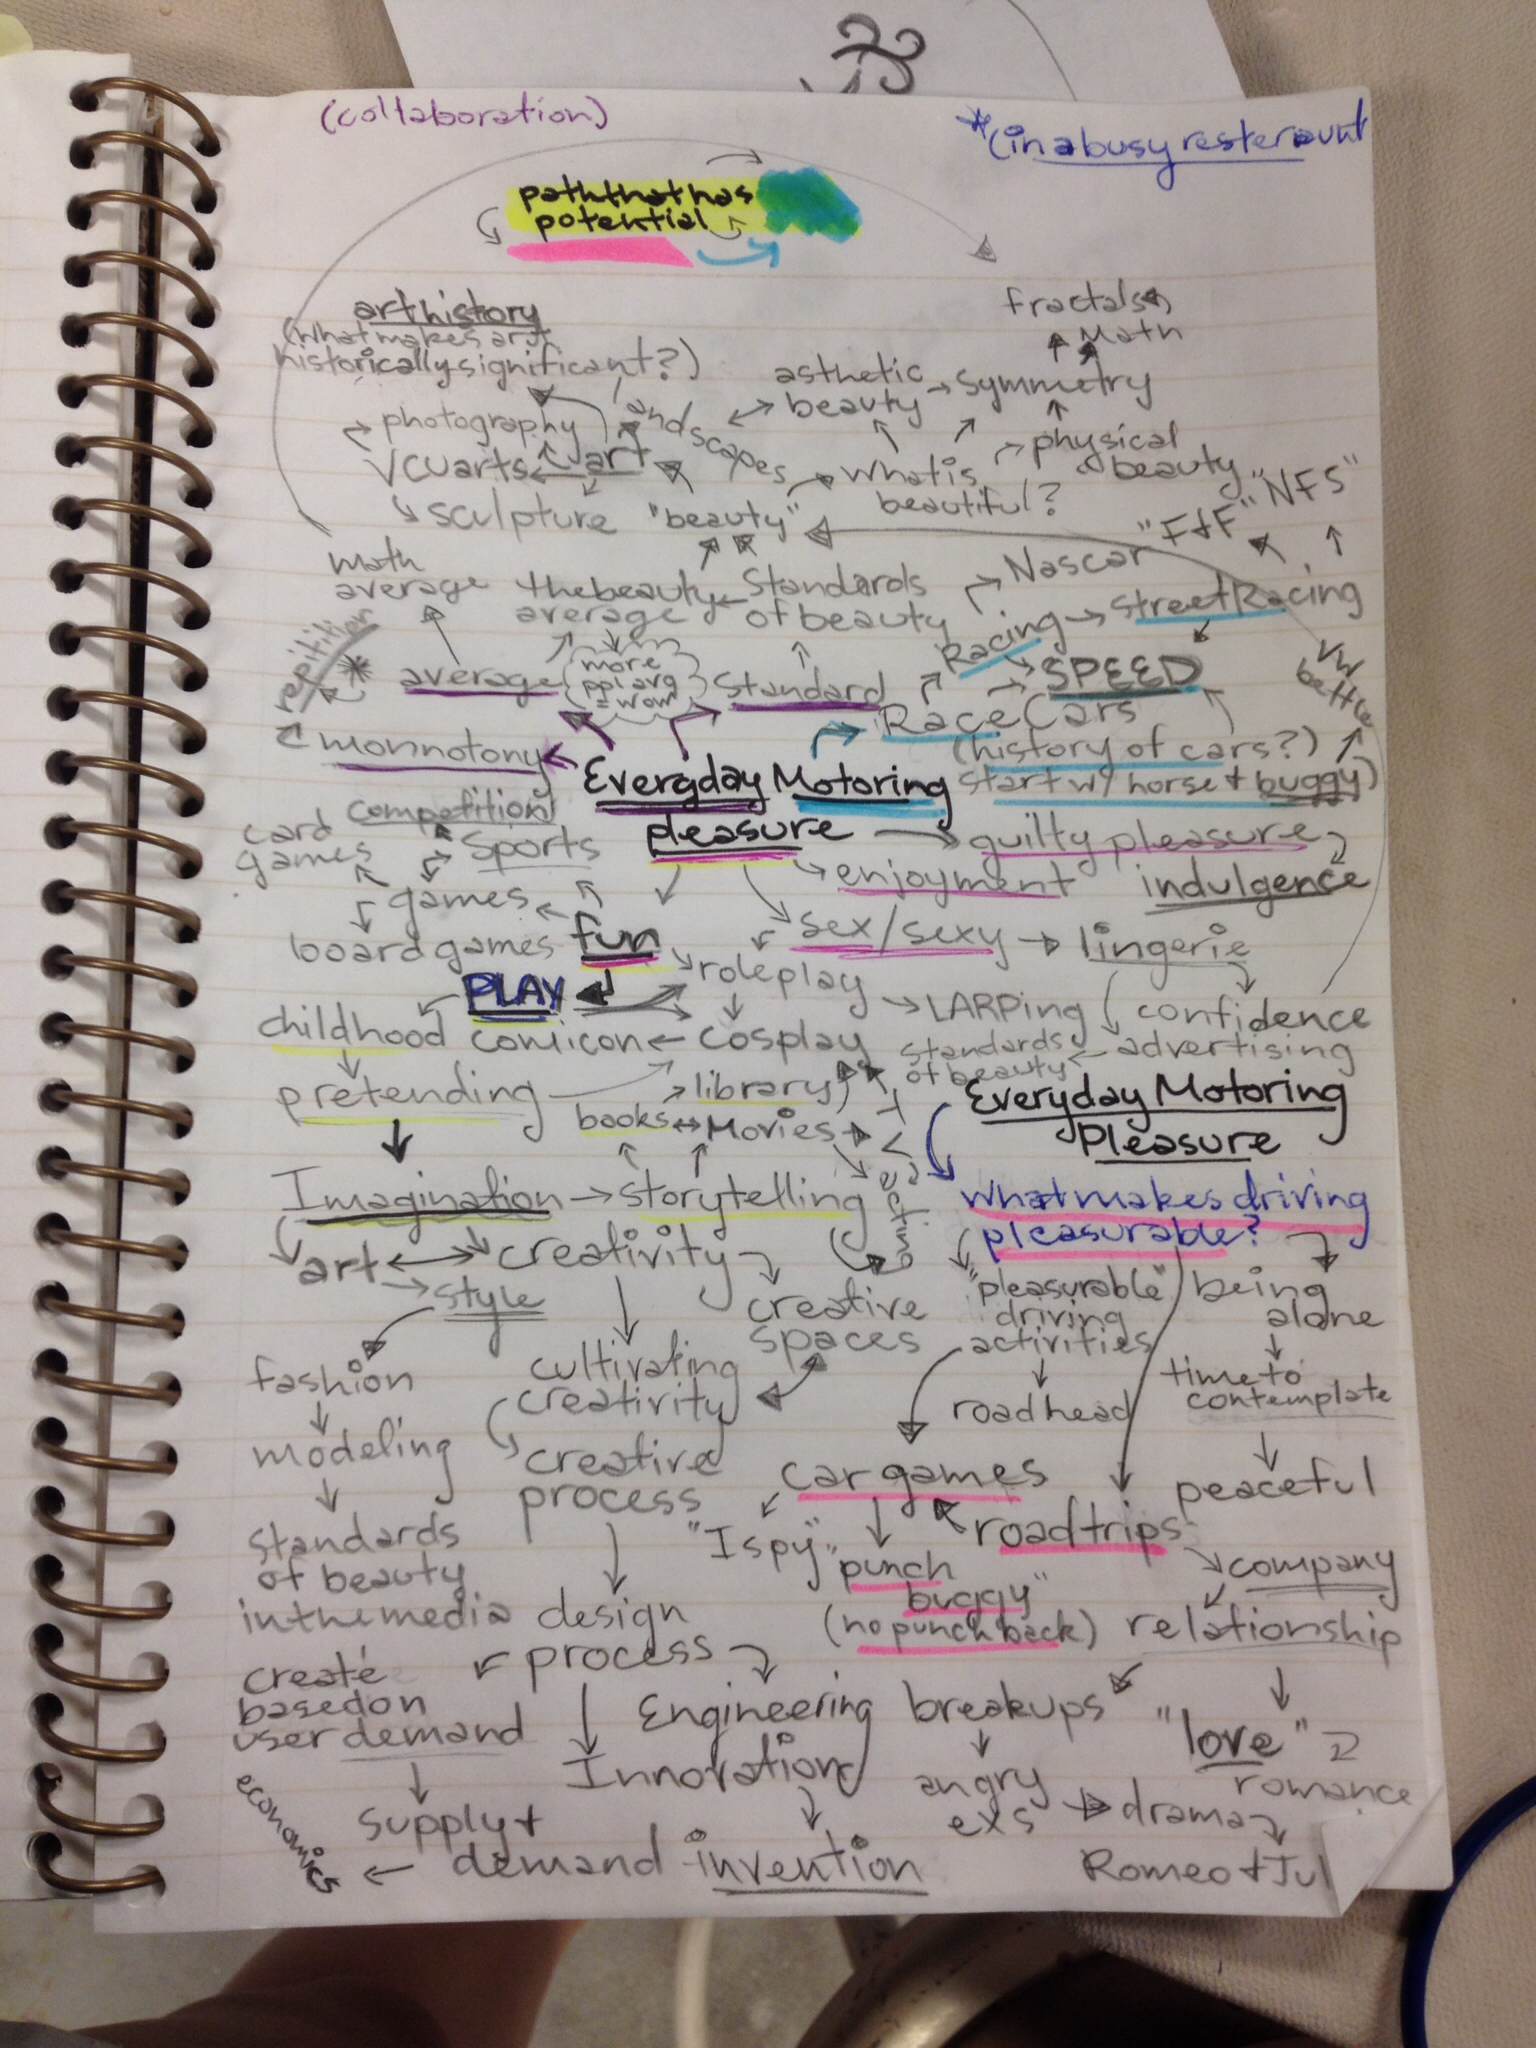 (collaboration)
*(in a busy resteraunt
path that has
potential
art history
(what makes art
historically significant?)
fractals
Math
asthetic
beauty
symmetry
photography
landscapes
physical
beauty
VCU arts
art
what is
beautiful?
sculpture
"beauty"
"F+F"
"NFS"
math
average
the beauty
average
Standards
of beauty
Nascar
Racing
Street Racing
repitition
*
average
more
ppl avg
= wow
Standard
SPEED
VW
bettle
Race Cars
monnotony
(history of cars?)
start w/ horse + buggy)
Everyday Motoring
pleasure
competition
card
games
sports
guilty pleasure
enjoyment
indulgence
games
board games
fun
sex/sexy
lingerie
PLAY
roleplay
LARPing
confidence
childhood
comicon
cosplay
standards
of beauty
advertising
pretending
library
books
Movies
TV
acting
Everyday Motoring
Pleasure
Imagination
storytelling
what makes driving
pleasurable?
art
creativity
style
creative
spaces
"pleasurable"
driving
activities
being
alone
fashion
cultivating
creativity
road head
time to
contemplate
modeling
creative
process
car games
peaceful
standards
of beauty
in the media
"I spy"
"punch
buggy"
(no punch back)
road trips
company
relationship
design
process
create
based on
user demand
Engineering
breakups
"love"
romance
Innovation
angry
exs
drama
economics
supply +
demand
invention
Romeo + Jul